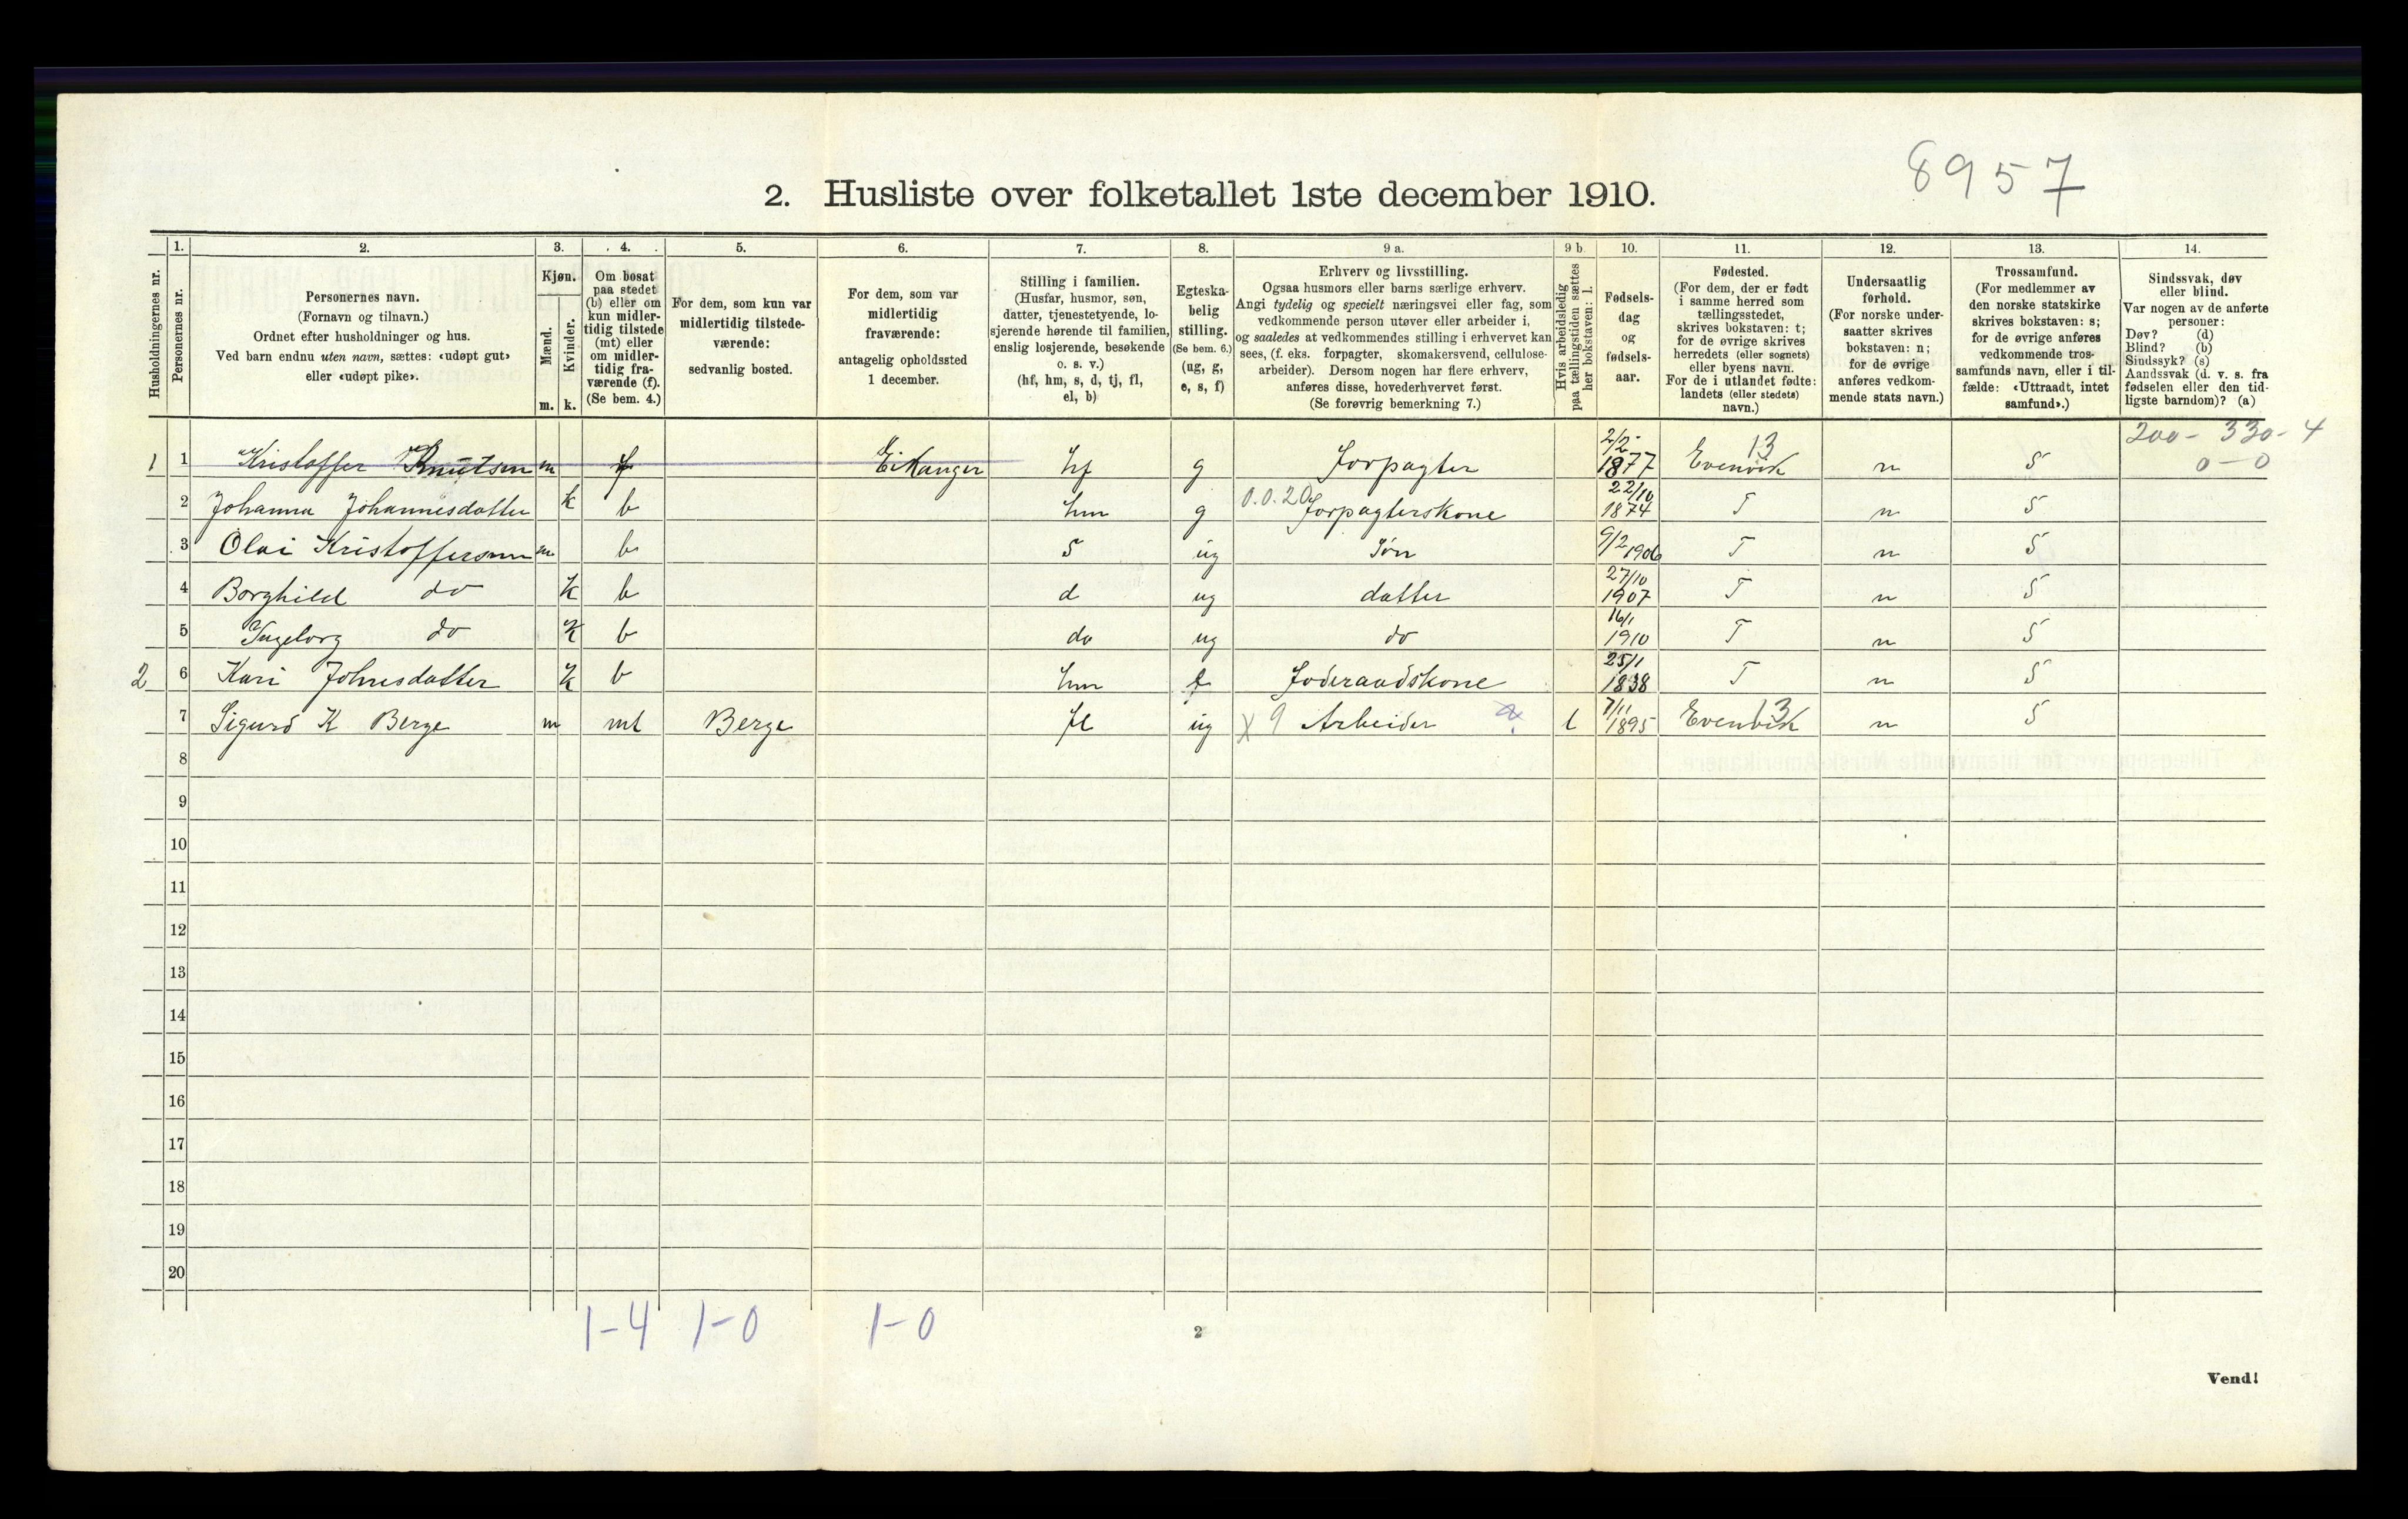 8957
2. Husliste over folketallet 1ste december 1910.
1. 2. 3. 4. 5. 6. 7. 8. 9 a. 9 b 10. 11. 12. 13. 14.
Husholdningernes nr.
Personernes nr.
Personernes navn.
(Fornavn og tilnavn.)
Ordnet efter husholdninger og hus.
Ved barn endnu uten navn, sættes: «udøpt gut»
eller «udøpt pike».
Kjøn.
Mænd.
Kvinder.
m. k.
Om bosat
paa stedet
(b) eller om
kun midler-
tidig tilstede
(mt) eller
om midler-
tidig fra-
værende (f).
(Se bem. 4.)
For dem, som kun var
midlertidig tilstede-
værende:
sedvanlig bosted.
For dem, som var
midlertidig
fraværende:
antagelig opholdssted
1 december.
Stilling i familien.
(Husfar, husmor, søn,
datter, tjenestetyende, lo-
sjerende hørende til familien,
enslig losjerende, besøkende
o. s. v.)
(hf, hm, s, d, tj, fl,
el, b)
Egteska-
belig
stilling.
(Se bem. 6.)
(ug, g,
e, s, f)
Erhverv og livsstilling.
Ogsaa husmors eller barns særlige erhverv.
Angi tydelig og specielt næringsvei eller fag, som
vedkommende person utøver eller arbeider i,
og saaledes at vedkommendes stilling i erhvervet kan
sees, (f. eks. forpagter, skomakersvend, cellulose-
arbeider). Dersom nogen har flere erhverv,
anføres disse, hovederhvervet først.
(Se forøvrig bemerkning 7.)
Hvis arbeidsledig
paa tællingstiden sættes
her bokstaven: l.
Fødsels-
dag
og
fødsels-
aar.
Fødested.
(For dem, der er født
i samme herred som
tællingsstedet,
skrives bokstaven: t;
for de øvrige skrives
herredets (eller sognets)
eller byens navn.
For de i utlandet fødte:
landets (eller stedets)
navn.)
Undersaatlig
forhold.
(For norske under-
saatter skrives
bokstaven: n;
for de øvrige
anføres vedkom-
mende stats navn.)
Trossamfund.
(For medlemmer av
den norske statskirke
skrives bokstaven: s;
for de øvrige anføres
vedkommende tros-
samfunds navn, eller i til-
fælde: «Uttraadt, intet
samfund».)
Sindssvak, døv
eller blind.
Var nogen av de anførte
personer:
Døv? (d)
Blind? (b)
Sindssyk? (s)
Aandssvak (d. v. s. fra
fødselen eller den tid-
ligste barndom)? (a)
200 - 330 - 4
0 - 0
1 1 Kristoffer Knutsen m f Eikanger hf g Forpagter 2/2 1877 Evenvik 13 n S
2 Johanna Johannesdatter k b hm g 0.0.20 Forpagterskone 22/10 1874 T n S
3 Olai Kristoffersen m b S ug Søn 9/2 1906 T n S
4 Borghild do k b d ug datter 27/10 1907 T n S
5 Ingeborg do k b do ug do 16/1 1910 T n S
2 6 Kari Johnesdatter k b hm Foderaadskone 25/1 1838 T n S
7 Sigurd K Berge m mt Berge fl ug X 9 Arbeider l 7/11 1895 Evenvik 13 n S
8
9
10
11
12
13
14
15
16
17
18
19
20
1-4 1-0 1-0
2
Vend!